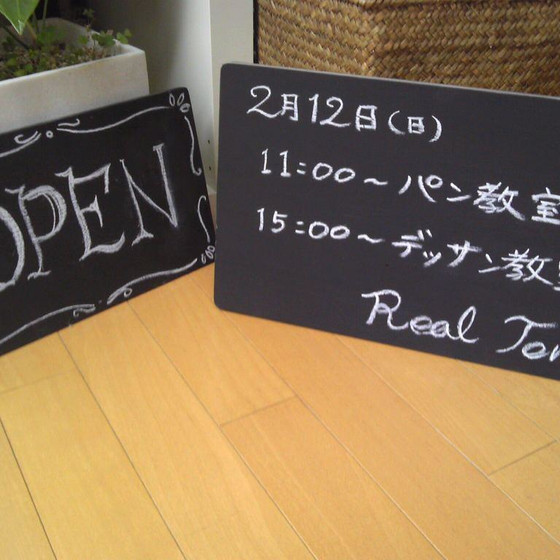 OPEN
2月12日(日)
11:00~パン教室
15:00~デッサン教室
Real